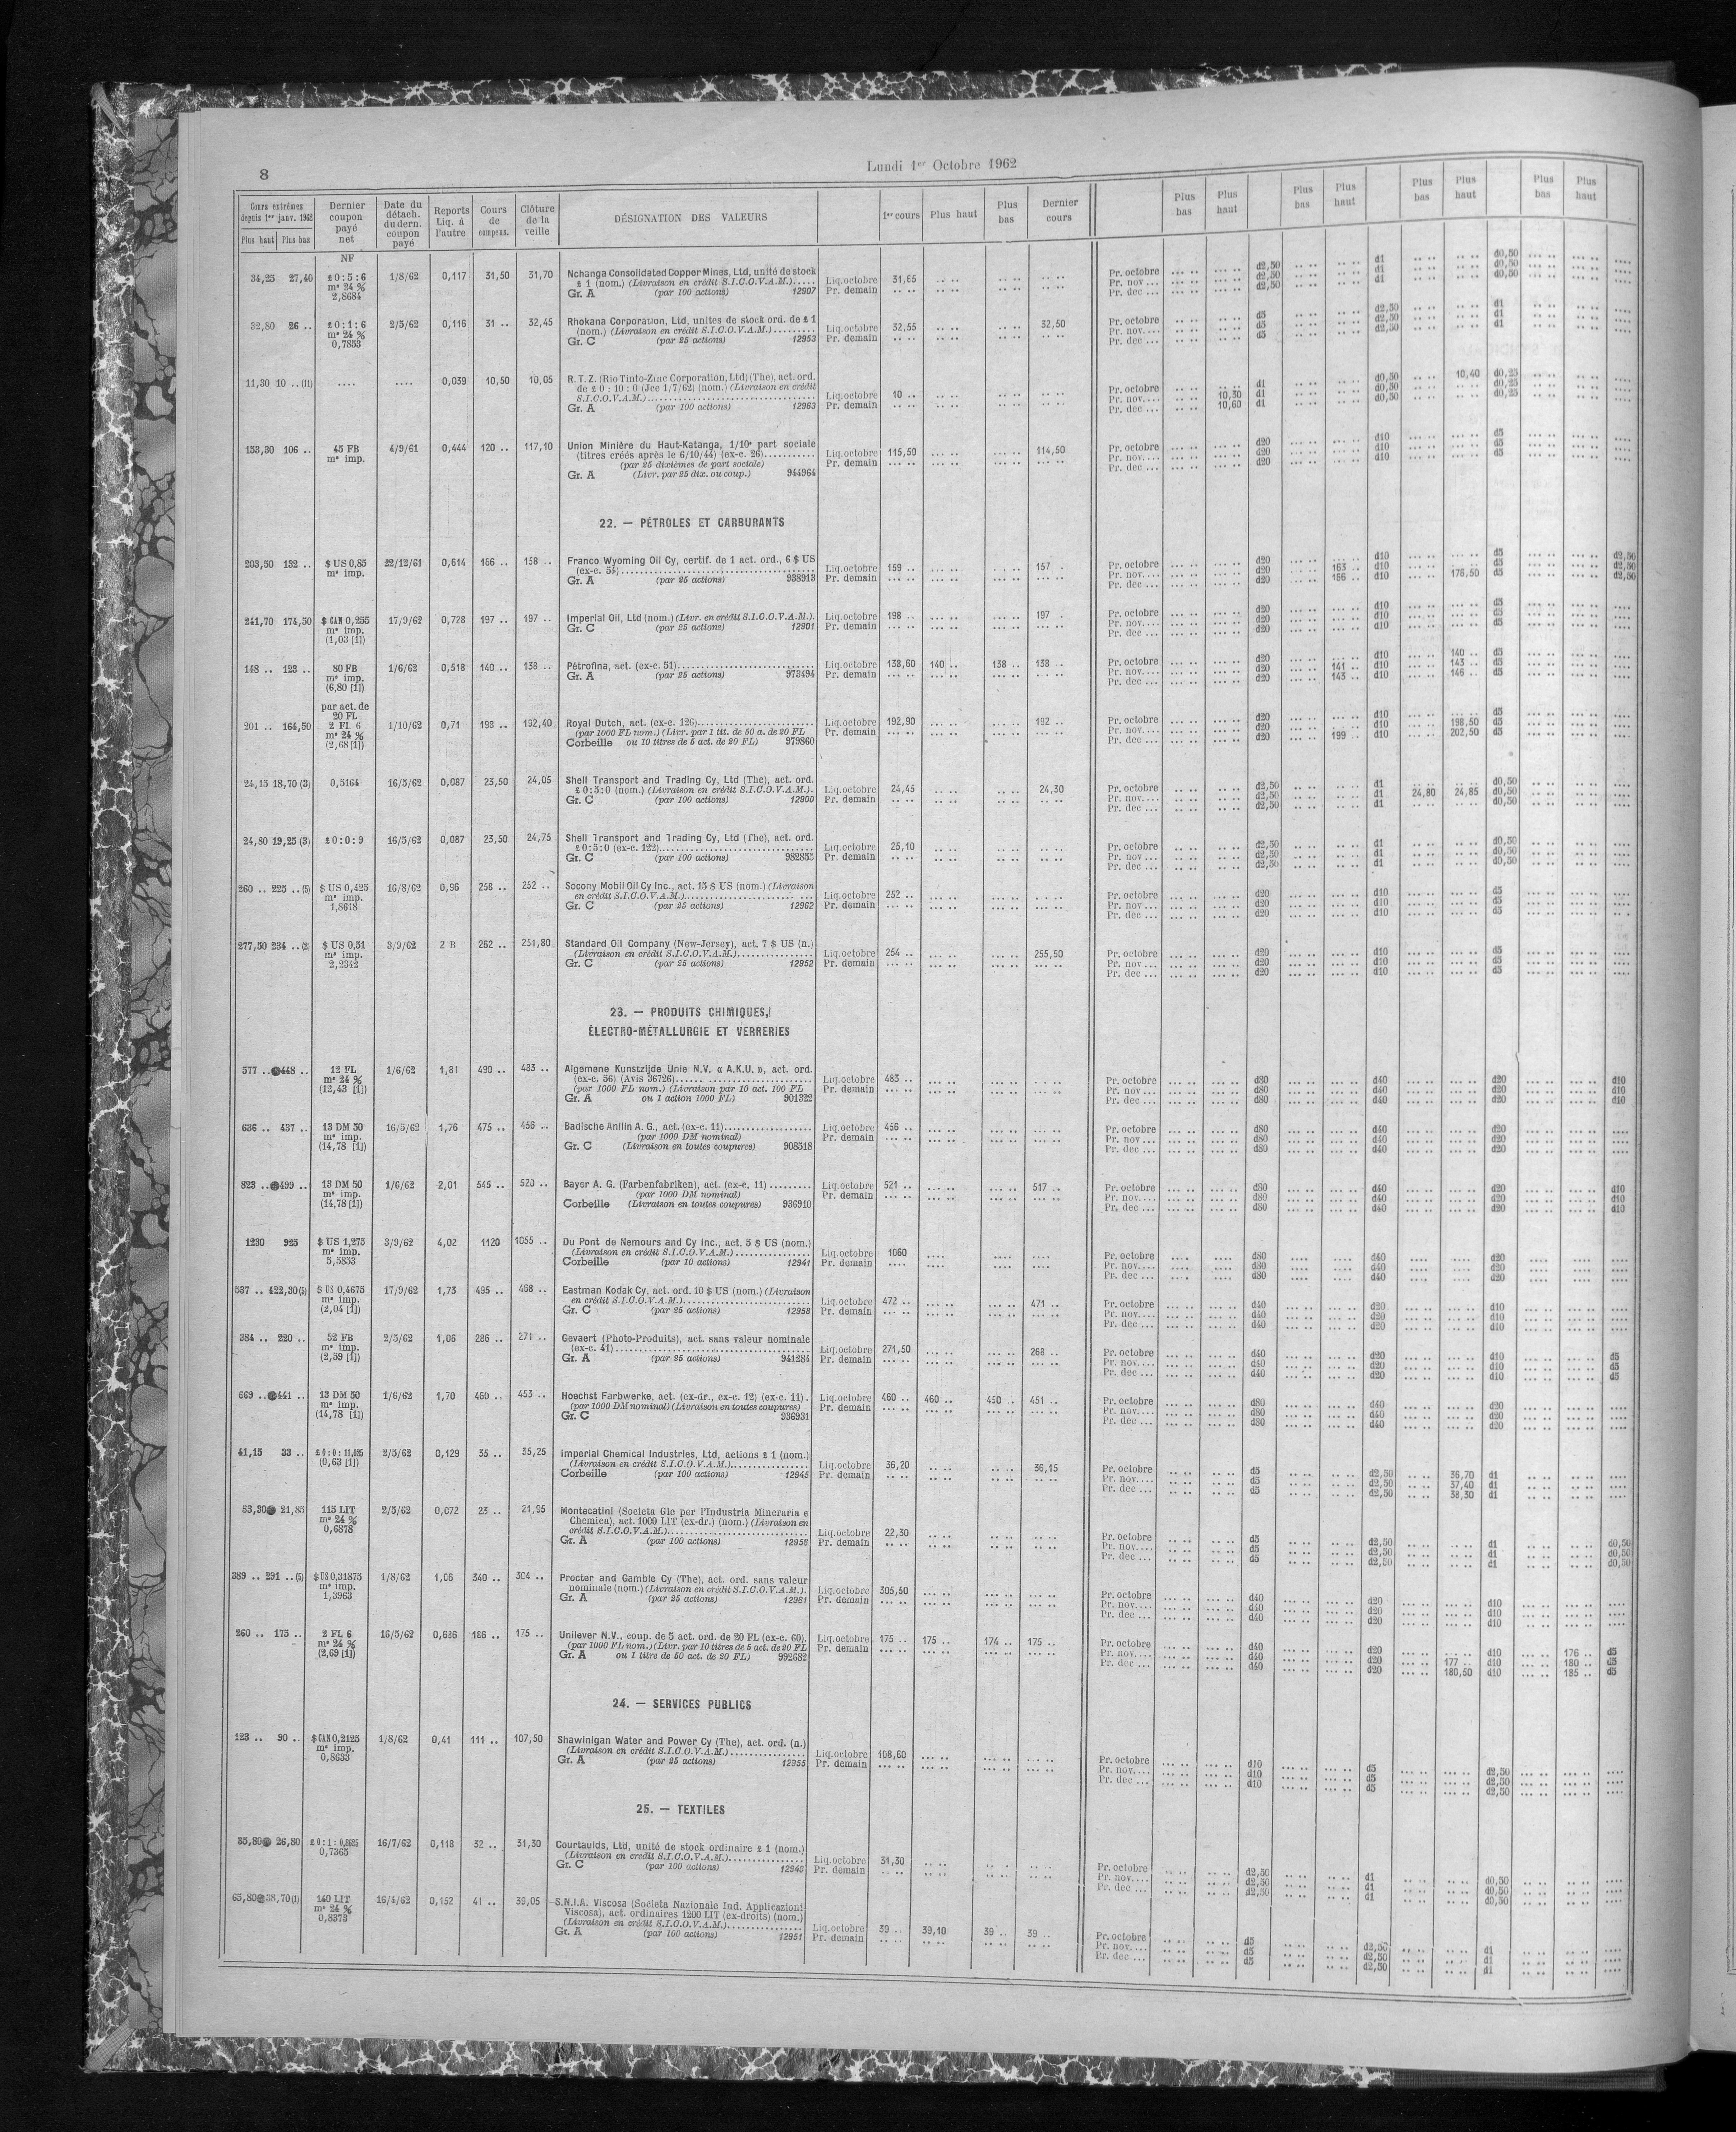 8
Lundi 1er Octobre 1962
Cours extrêmes depuis 1er janv. 1962
Plus haut Plus bas
Dernier coupon payé net
Date du détach. du dern. coupon payé
Reports Liq. à l'autre
Cours de compens.
Clôture de la veille
DÉSIGNATION DES VALEURS
1er cours
Plus haut
Plus bas
Dernier cours
Plus bas
Plus haut
Plus bas
Plus haut
Plus bas
Plus haut
Plus bas
Plus haut
NF
34,25 27,40 £ 0:5:6 1/8/62 0,117 31,50 31,70 Nchanga Consolidated Copper Mines, Ltd, unité de stock
m* 24 % £ 1 (nom.) (Livraison en crédit S.I.C.O.V.A.M.)..... Liq.octobre 31,65
2,8684 Gr. A (par 100 actions) 12907 Pr. demain
Pr. octobre d2,50 d1 d0,50
Pr. nov ... d2,50 d1 d0,50
Pr. dec ... d2,50 d1 d0,50
32,80 26 .. £ 0:1:6 2/5/62 0,116 31 .. 32,45 Rhokana Corporation, Ltd, unites de stock ord. de £ 1
m* 24 % (nom.) (Livraison en crédit S.I.C.O.V.A.M.)......... Liq.octobre 32,55 32,50
0,7853 Gr. C (par 25 actions) 12953 Pr. demain
Pr. octobre d5 d2,50 d1
Pr. nov.... d5 d2,50 d1
Pr. dec ... d5 d2,50 d1
11,30 10 ..(11) .... .... 0,039 10,50 10,05 R.T.Z. (Rio Tinto-Zinc Corporation, Ltd) (The), act. ord.
de £ 0:10:0 (Jce 1/7/62) (nom.) (Livraison en crédit
S.I.C.O.V.A.M.)..... Liq.octobre 10 ..
Gr. A (par 100 actions) 12963 Pr. demain
Pr. octobre d1 d0,50 10,40 d0,25
Pr. nov.... 10,30 d1 d0,50 d0,25
Pr. dec ... 10,60 d1 d0,50 d0,25
153,30 106 .. 45 FB 4/9/61 0,444 120 .. 117,10 Union Minière du Haut-Katanga, 1/10e part sociale
m* imp. (titres créés après le 6/10/44) (ex-c. 26)........... Liq.octobre 115,50 114,50
(par 25 dixièmes de part sociale) Pr. demain
Gr. A (Livr. par 25 dix. ou coup.) 944964
Pr. octobre d20 d10 d5
Pr. nov.... d20 d10 d5
Pr. dec ... d20 d10 d5
22. — PÉTROLES ET CARBURANTS
203,50 132 .. $ US 0,85 22/12/61 0,614 166 .. 158 .. Franco Wyoming Oil Cy, certif. de 1 act. ord., 6 $ US
m* imp. (ex-c. 54)..... Liq.octobre 159 .. 157 .
Gr. A (par 25 actions) 938913 Pr. demain
Pr. octobre d20 d10 d5 d2,50
Pr. nov.... d20 163 .. d10 d5 d2,50
Pr. dec ... d20 166 .. d10 176,50 d5 d2,50
241,70 174,50 $ CAN 0,255 17/9/62 0,728 197 .. 197 .. Imperial Oil, Ltd (nom.) (Livr. en crédit S.I.C.O.V.A.M.). Liq.octobre 198 .. 197 .
m* imp. Gr. C (par 25 actions) 12901 Pr. demain
(1,03 [1])
Pr. octobre d20 d10 d5
Pr. nov.... d20 d10 d5
Pr. dec ... d20 d10 d5
148 .. 123 .. 80 FB 1/6/62 0,518 140 .. 138 .. Pétrofina, act. (ex-c. 51)..... Liq.octobre 138,60 140 .. 138 .. 138 ..
m* imp. Gr. A (par 25 actions) 973494 Pr. demain
(6,80 [1])
Pr. octobre d20 d10 140 .. d5
Pr. nov.... d20 141 .. d10 143 .. d5
Pr. dec ... d20 143 .. d10 146 .. d5
par act. de
20 FL
201 .. 164,50 2 FL 6 1/10/62 0,71 198 .. 192,40 Royal Dutch, act. (ex-c. 126)..... Liq.octobre 192,90 192 ..
m* 24 % (par 1000 FL nom.) (Livr. par 1 tit. de 50 a. de 20 FL Pr. demain
(2,68 [1]) Corbeille ou 10 titres de 5 act. de 20 FL) 979860
Pr. octobre d20 d10 d5
Pr. nov.... d20 d10 198,50 d5
Pr. dec ... d20 199 .. d10 202,50 d5
24,15 18,70 (3) 0,5164 16/5/62 0,087 23,50 24,05 Shell Transport and Trading Cy, Ltd (The), act. ord.
£ 0:5:0 (nom.) (Livraison en crédit S.I.C.O.V.A.M.). Liq.octobre 24,45 24,30
Gr. C (par 100 actions) 12900 Pr. demain
Pr. octobre d2,50 d1 d0,50
Pr. nov.... d2,50 d1 24,80 24,85 d0,50
Pr. dec ... d2,50 d1 d0,50
24,80 19,25 (3) £ 0:0:9 16/5/62 0,087 23,50 24,75 Shell Transport and Trading Cy, Ltd (The), act. ord.
£ 0:5:0 (ex-c. 122)..... Liq.octobre 25,10
Gr. C (par 100 actions) 982855 Pr. demain
Pr. octobre d2,50 d1 d0,50
Pr. nov ... d2,50 d1 d0,50
Pr. dec ... d2,50 d1 d0,50
260 .. 225 ..(5) $ US 0,425 16/8/62 0,96 258 .. 252 .. Socony Mobil Oil Cy Inc., act. 15 $ US (nom.) (Livraison
m* imp. en crédit S.I.C.O.V.A.M.)..... Liq.octobre 252 ..
1,8618 Gr. C (par 25 actions) 12962 Pr. demain
Pr. octobre d20 d10 d5
Pr. nov ... d20 d10 d5
Pr. dec ... d20 d10 d5
277,50 234 ..(2) $ US 0,51 3/9/62 2 B 262 .. 251,80 Standard Oil Company (New-Jersey), act. 7 $ US (n.)
m* imp. (Livraison en crédit S.I.C.O.V.A.M.)............... Liq.octobre 254 .. 255,50
2,2342 Gr. C (par 25 actions) 12952 Pr. demain
Pr. octobre d20 d10 d5
Pr. nov ... d20 d10 d5
Pr. dec ... d20 d10 d5
23. — PRODUITS CHIMIQUES,
ÉLECTRO-MÉTALLURGIE ET VERRERIES
577 .. 448 .. 12 FL 1/6/62 1,81 490 .. 483 .. Algemene Kunstzijde Unie N.V. « A.K.U. », act. ord.
m* 24 % (ex-c. 56) (Avis 36726)..... Liq.octobre 483 ..
(12,43 [1]) (par 1000 FL nom.) (Livraison par 10 act. 100 FL Pr. demain
Gr. A ou 1 action 1000 FL) 901322
Pr. octobre d80 d40 d20 d10
Pr. nov ... d80 d40 d20 d10
Pr. dec ... d80 d40 d20 d10
636 .. 437 .. 13 DM 50 16/5/62 1,76 475 .. 456 .. Badische Anilin A. G., act. (ex-c. 11)..... Liq.octobre 456 ..
m* imp. (par 1000 DM nominal) Pr. demain
(14,78 [1]) Gr. C (Livraison en toutes coupures) 908518
Pr. octobre d80 d40 d20
Pr. nov ... d80 d40 d20
Pr. dec ... d80 d40 d20
823 .. 499 .. 13 DM 50 1/6/62 2,01 545 .. 520 .. Bayer A. G. (Farbenfabriken), act. (ex-c. 11) ......... Liq.octobre 521 .. 517 ..
m* imp. (par 1000 DM nominal) Pr. demain
(14,78 [1]) Corbeille (Livraison en toutes coupures) 936910
Pr. octobre d80 d40 d20 d10
Pr. nov.... d80 d40 d20 d10
Pr. dec ... d80 d40 d20 d10
1230 925 $ US 1,275 3/9/62 4,02 1120 1055 .. Du Pont de Nemours and Cy Inc., act. 5 $ US (nom.)
m* imp. (Livraison en crédit S.I.C.O.V.A.M.) ............... Liq.octobre 1060
5,5853 Corbeille (par 10 actions) 12941 Pr. demain
Pr. octobre d80 d40 d20
Pr. nov.... d80 d40 d20
Pr. dec ... d80 d40 d20
537 .. 422,30(5) $ US 0,4675 17/9/62 1,73 495 .. 468 .. Eastman Kodak Cy, act. ord. 10 $ US (nom.) (Livraison
m* imp. en crédit S.I.C.O.V.A.M.)..... Liq.octobre 472 .. 471 ..
(2,04 [1]) Gr. C (par 25 actions) 12958 Pr. demain
Pr. octobre d40 d20 d10
Pr. nov.... d40 d20 d10
Pr. dec ... d40 d20 d10
384 .. 220 .. 32 FB 2/5/62 1,06 286 .. 271 .. Gevaert (Photo-Produits), act. sans valeur nominale
m* imp. (ex-c. 41)..... Liq.octobre 271,50 268 ..
(2,59 [1]) Gr. A (par 25 actions) 941284 Pr. demain
Pr. octobre d40 d20 d10 d5
Pr. nov.... d40 d20 d10 d5
Pr. dec ... d40 d20 d10 d5
669 .. 441 .. 13 DM 50 1/6/62 1,70 460 .. 453 .. Hoechst Farbwerke, act. (ex-dr., ex-c. 12) (ex-c. 11). Liq.octobre 460 .. 460 .. 450 .. 451 ..
m* imp. (par 1000 DM nominal) (Livraison en toutes coupures) Pr. demain
(14,78 [1]) Gr. C 936931
Pr. octobre d80 d40 d20
Pr. nov.... d80 d40 d20
Pr. dec ... d80 d40 d20
41,15 33 .. £ 0:0:11,025 2/5/62 0,129 35 .. 35,25 Imperial Chemical Industries, Ltd, actions £ 1 (nom.)
(0,63 [1]) (Livraison en crédit S.I.C.O.V.A.M.)............... Liq.octobre 36,20 36,15
Corbeille (par 100 actions) 12945 Pr. demain
Pr. octobre d5 d2,50 36,70 d1
Pr. nov.... d5 d2,50 37,40 d1
Pr. dec ... d5 d2,50 38,30 d1
33,30 21,85 115 LIT 2/5/62 0,072 23 .. 21,95 Montecatini (Societa Gle per l'Industria Mineraria e
m* 24 % Chemica), act. 1000 LIT (ex-dr.) (nom.) (Livraison en
0,6878 crédit S.I.C.O.V.A.M.)..... Liq.octobre 22,30
Gr. A (par 100 actions) 12956 Pr. demain
Pr. octobre d5 d2,50 d1 d0,50
Pr. nov.... d5 d2,50 d1 d0,50
Pr. dec ... d5 d2,50 d1 d0,50
389 .. 291 ..(5) $ US 0,31875 1/8/62 1,06 340 .. 304 .. Procter and Gamble Cy (The), act. ord. sans valeur
m* imp. nominale (nom.) (Livraison en crédit S.I.C.O.V.A.M.). Liq.octobre 305,50
1,3963 Gr. A (par 25 actions) 12961 Pr. demain
Pr. octobre d40 d20 d10
Pr. nov.... d40 d20 d10
Pr. dec ... d40 d20 d10
260 .. 175 .. 2 FL 6 16/5/62 0,626 186 .. 175 .. Unilever N.V., coup. de 5 act. ord. de 20 FL (ex-c. 60). Liq.octobre 175 .. 175 .. 174 .. 175 ..
m* 24 % (par 1000 FL nom.) (Livr. par 10 titres de 5 act. de 20 FL Pr. demain
(2,69 [1]) Gr. A ou 1 titre de 50 act. de 20 FL) 992682
Pr. octobre d40 d20 d10 176 .. d5
Pr. nov.... d40 d20 177 .. d10 180 .. d5
Pr. dec ... d40 d20 180,50 d10 185 .. d5
24. — SERVICES PUBLICS
123 .. 90 .. $ CAN 0,2125 1/8/62 0,41 111 .. 107,50 Shawinigan Water and Power Cy (The), act. ord. (n.)
m* imp. (Livraison en crédit S.I.C.O.V.A.M.)............... Liq.octobre 108,60
0,8633 Gr. A (par 25 actions) 12955 Pr. demain
Pr. octobre d10 d5 d2,50
Pr. nov.... d10 d5 d2,50
Pr. dec ... d10 d5 d2,50
25. — TEXTILES
35,80 26,80 £ 0:1:0,8625 16/7/62 0,118 32 .. 31,30 Courtaulds, Ltd, unité de stock ordinaire £ 1 (nom.)
0,7365 (Livraison en crédit S.I.C.O.V.A.M.)............... Liq.octobre 31,30
Gr. C (par 100 actions) 12948 Pr. demain
Pr. octobre d2,50 d1 d0,50
Pr. nov.... d2,50 d1 d0,50
Pr. dec ... d2,50 d1 d0,50
65,80 38,70(1) 140 LIT 16/4/62 0,152 41 .. 39,05 S.N.I.A. Viscosa (Societa Nazionale Ind. Applicazioni
m* 24 % Viscosa), act. ordinaires 1200 LIT (ex-droits) (nom.)
0,8373 (Livraison en crédit S.I.C.O.V.A.M.)............... Liq.octobre 39 .. 39,10 39 .. 39 ..
Gr. A (par 100 actions) 12951 Pr. demain
Pr. octobre d5 d2,50 d1
Pr. nov.... d5 d2,50 d1
Pr. dec ... d5 d2,50 d1